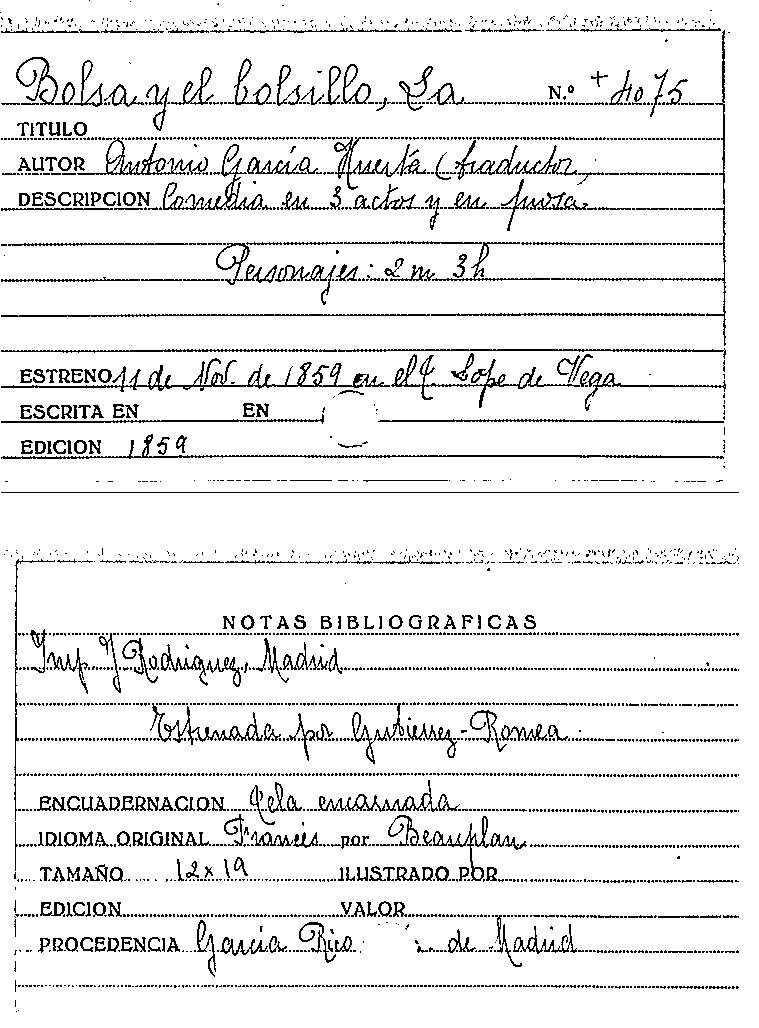 Bolsa y el bolsillo, La N.º + 4075
TITULO
AUTOR Antonio García Huerta (traductor)
DESCRIPCION Comedia en 3 actos y en prosa.
Personajes: 2 m 3 h
ESTRENO 11 de Nov. de 1859 en el T. Lope de Vega
ESCRITA EN EN
EDICION 1859
NOTAS BIBLIOGRAFICAS
Imp. J. Rodriguez, Madrid
Estrenada por Gutierrez-Romea
ENCUADERNACION Tela encarnada
IDIOMA ORIGINAL Francés por Beauplan
TAMAÑO 12 x 19 ILUSTRADO POR
EDICION VALOR
PROCEDENCIA García Rico de Madrid